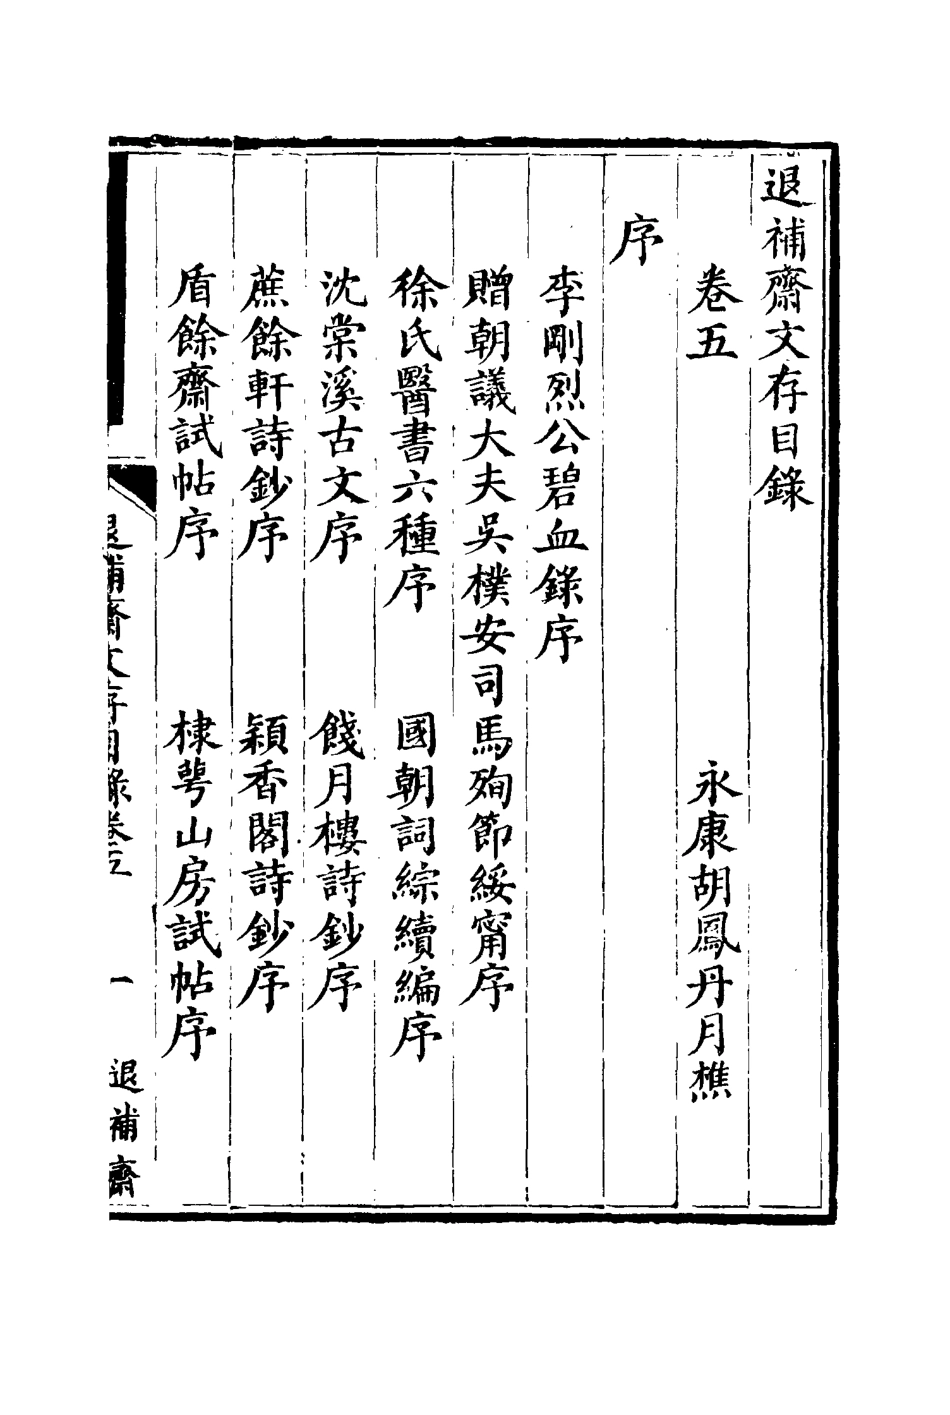 退補齋文存目錄
卷五　永康胡鳳丹月樵
序
李剛烈公碧血錄序
贈朝議大夫吳樸安司馬殉節綏甯序
徐氏醫書六種序　國朝詞綜續編序
沈棠溪古文序　餞月樓詩鈔序
蔗餘軒詩鈔序　穎香閣詩鈔序
盾餘齋試帖序　棣萼山房試帖序
退補齋文存目錄卷五　一　退補齋